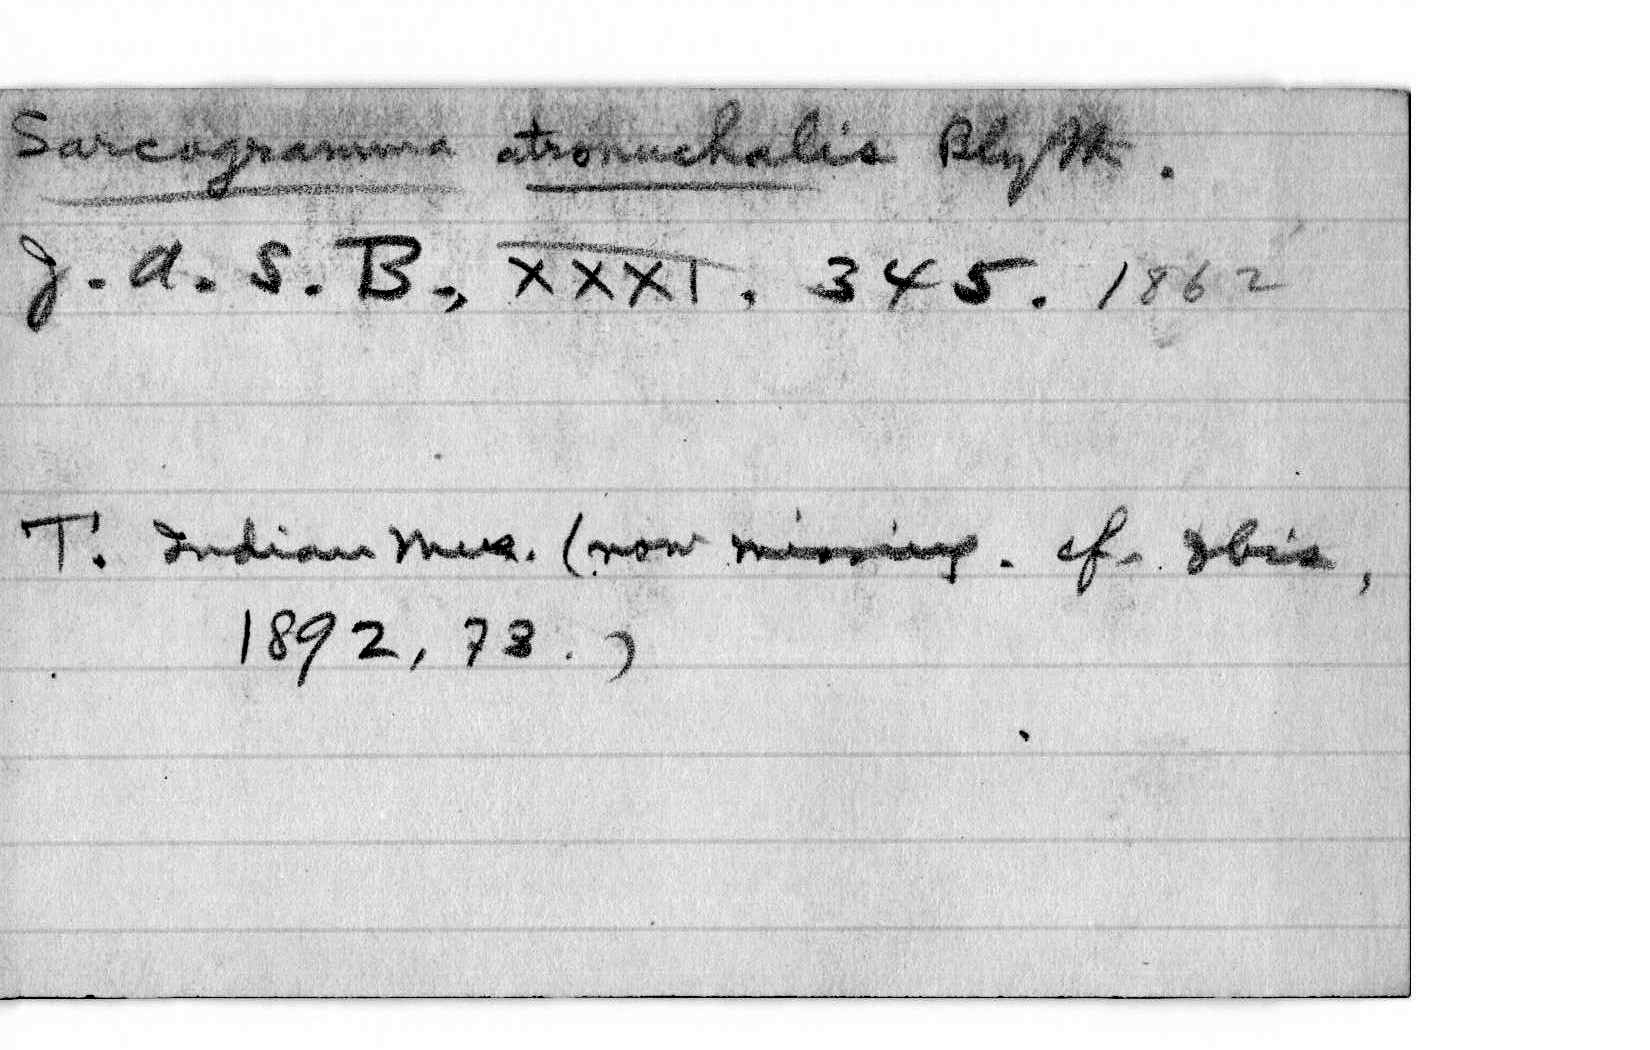 Sarcogramma atronuchalis Blyth.
J. A. S. B., XXXI. 345. 1862
T. Indian Mus. (now missing. cf. Ibis,
1892, 73.)